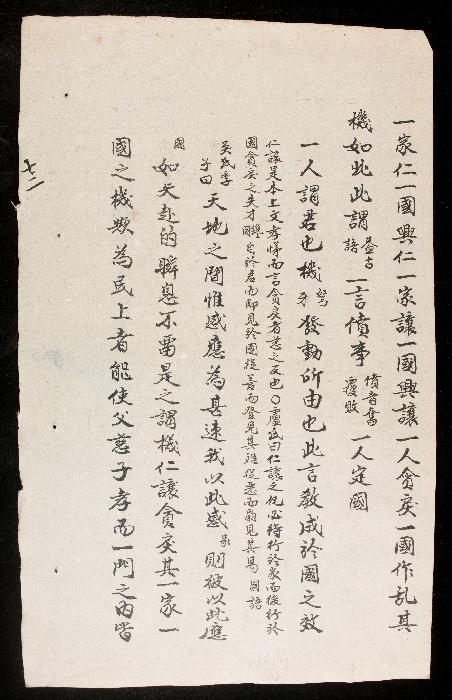 一家仁一國興仁一家讓一國興讓一人貪戾一國作乱其
機如此此謂盖古語一言僨事僨者奮覆敗一人定國
一人謂君也機弩牙發動所由也此言教成於國之效
仁讓是本上文孝悌而言貪戾者慈之反也〇盧氏曰仁讓之化必待行於家而後行於
國貪戾之失才自於君而即見於國從善而登見其難從惡而崩見其易國語
吴氏季子曰天地之間惟感應為甚速我以此感家則彼以此應
國如矢赴的瞬息不留是之謂機仁讓貪戾其一家一
國之機欤為民上者能使父慈子孝而一門之內皆
十二